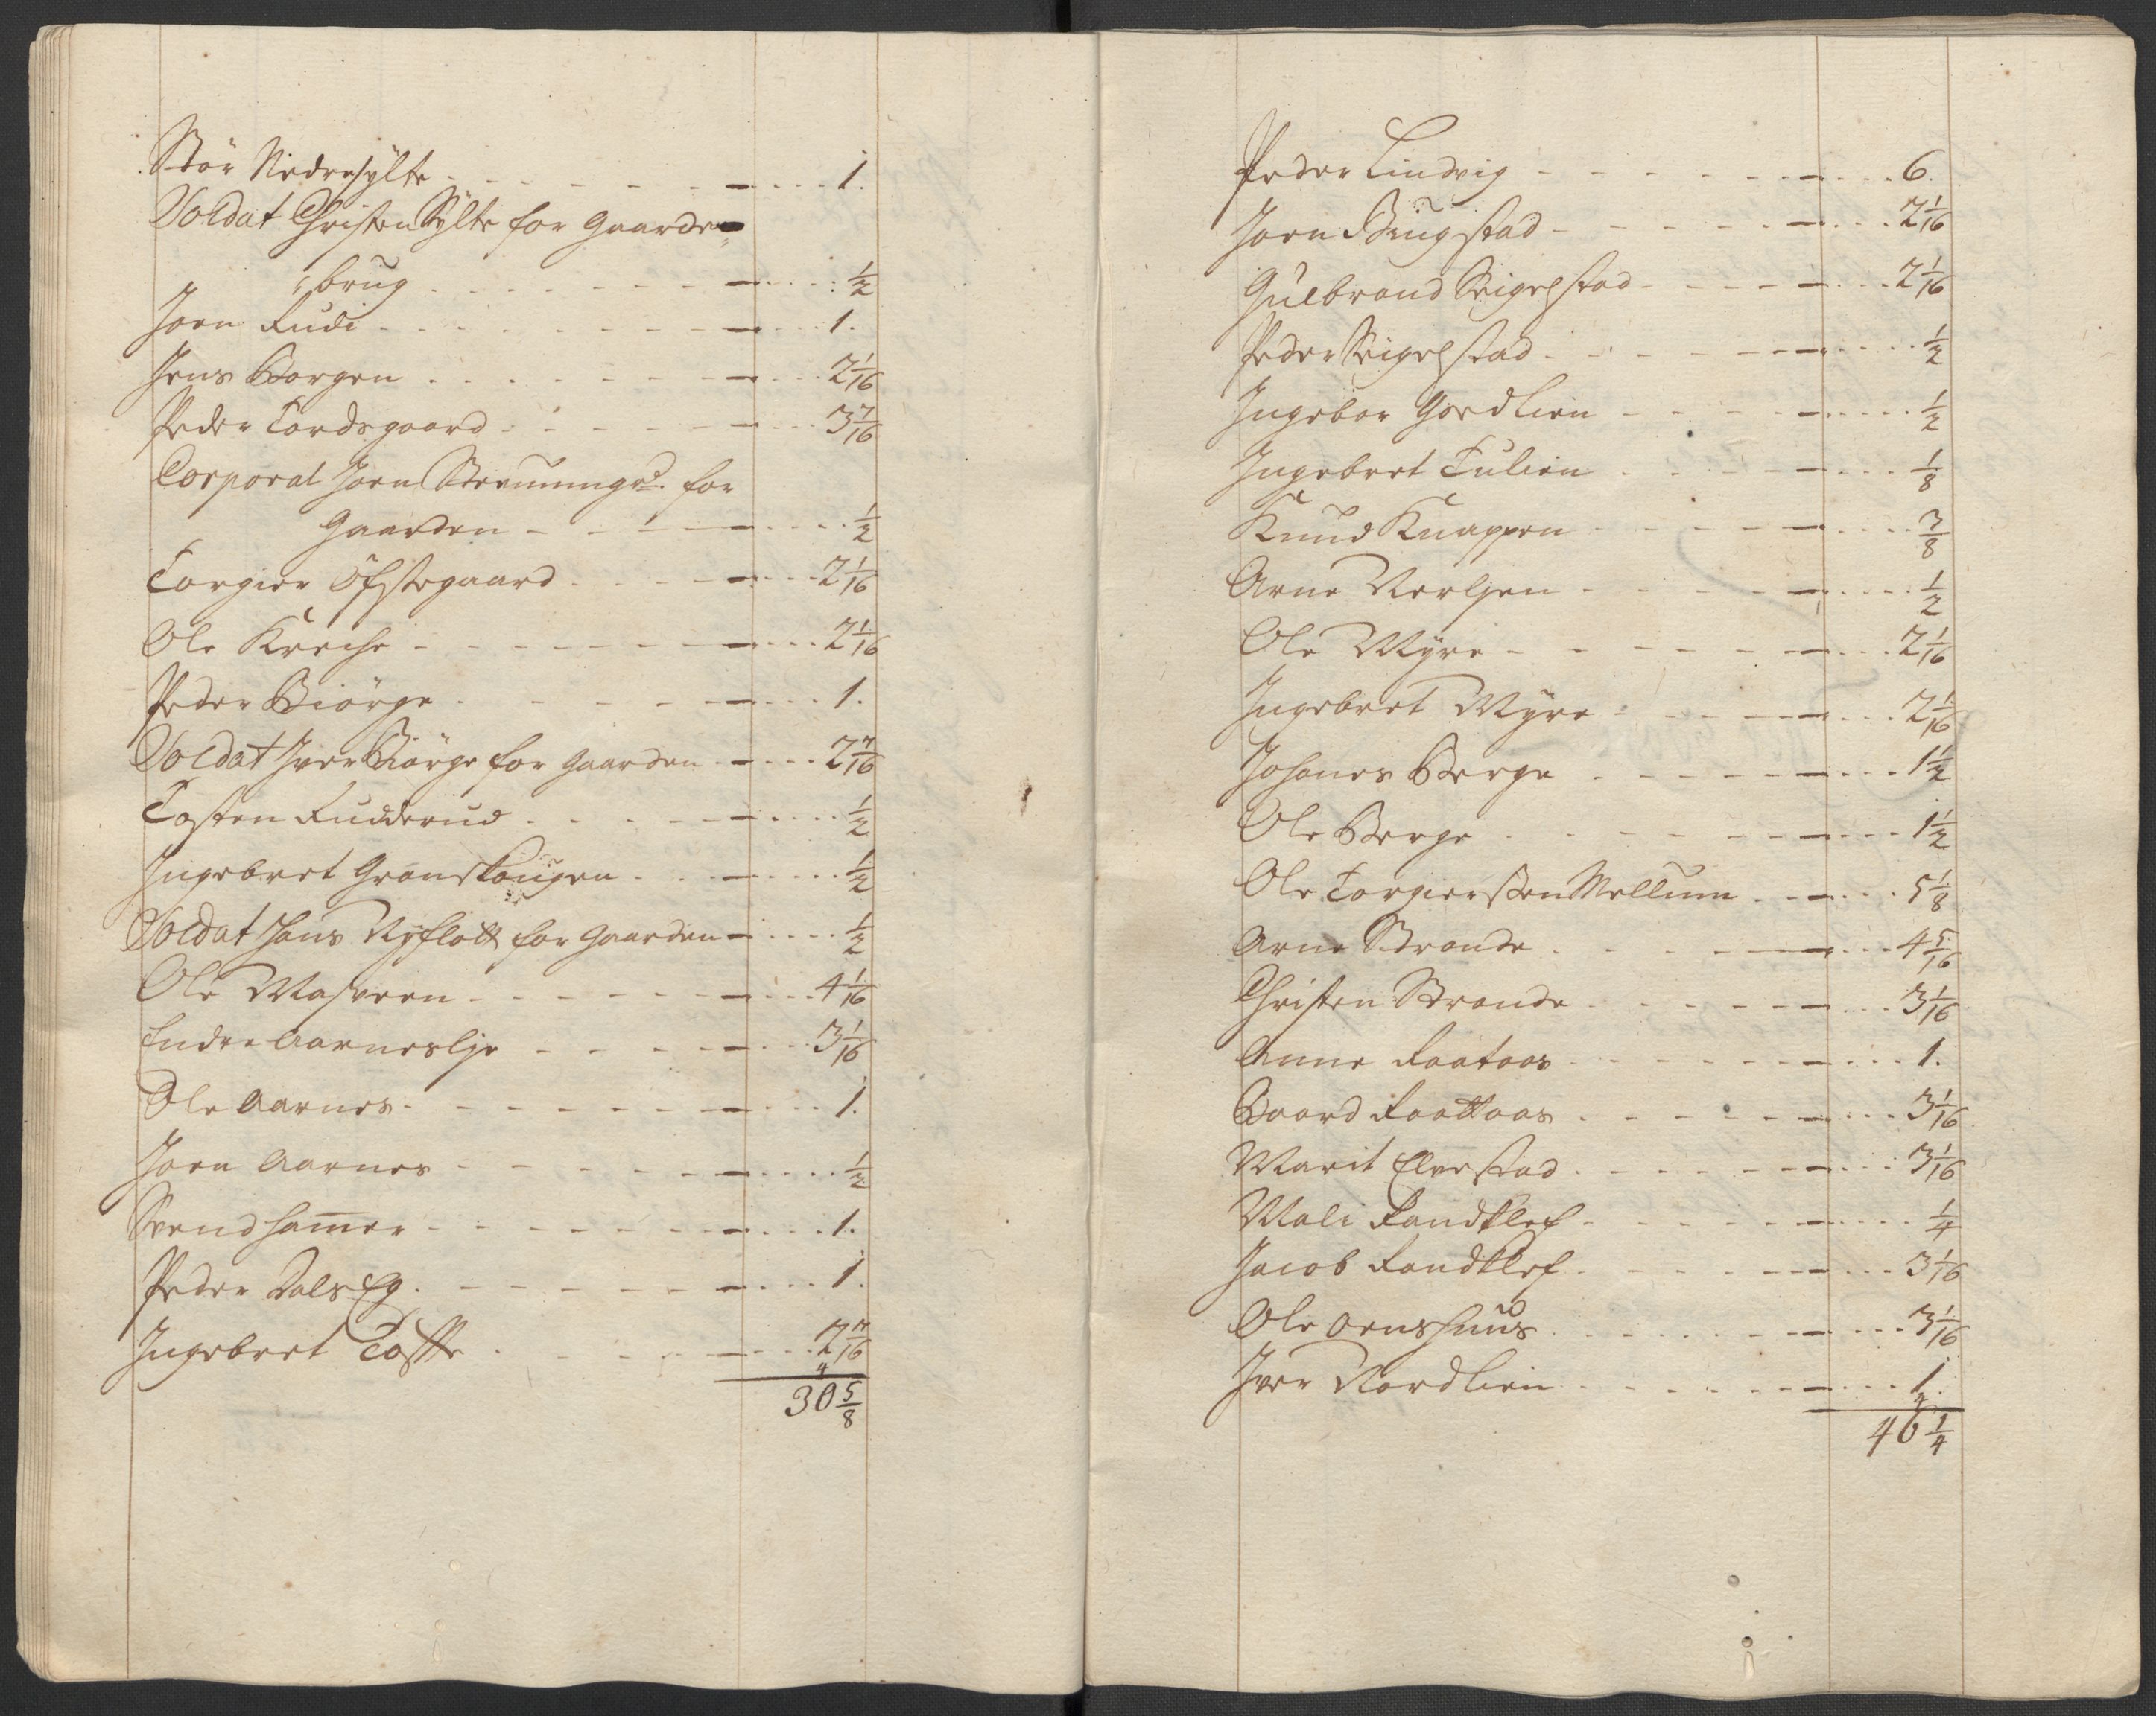 Siör Nedresylte - - - - 1.
Soldat Christen Sylte for Gaarde=
=brug - - - - ½
Joen Rudi - - - - 1.
Jens Borgen - - - - 2 1/16
Peder Tordsgaard - - - - 3 7/16
Corporal Joen for
Gaarden - - - - ½
Torgier Öfstegaard - - - - 2 1/16
Ole Kreche - - - - 2 1/16
Peder Biörge - - - - 1.
Soldat Iver Biörge for Gaarden - - - - 2 7/16
Tosten Rudderud - - - - ½
Ingebret Granskougen - - - - ½
Soldat Hans Nyflott for Gaarden - - - - ½
Ole Masveen - - - - 4 1/16
Endre Aarneslye - - - - 3 1/16
Ole Aarnes - - - - 1.
Joen Aarnes - - - - ½
Svend Hamer - - - - 1.
Peder Dalseg - - - - 1.
Ingebret Toffte - - - - 2 7/16
4
30 5/8
Peder Lindvig - - - - 6.
Joen Bingstad - - - - 2 1/16
Gulbrand Seigelstad - - - - 2 1/16
Peder Seigelstad - - - - ½
Ingebor Gordlien - - - - ½
Ingebret Tulien - - - - 1/8
Knud Knappen - - - - 3/8
Arne - - - - ½
Ole Myre - - - - 2 1/16
Ingebret Myre - - - - 2 1/16
Johanes Berge - - - - 1½
Ole Berge - - - - 1½
Ole Torgiersen Mellum - - - - 5 1/8
Arne Strande - - - - 4 5/16
Christen Strande - - - - 3 1/16
Anne Raataas - - - - 1.
Baard Raattaas - - - - 3 1/16
Marit Elvestad - - - - 3 1/16
Mali Randklef - - - - ¼
Jacob Randklef - - - - 3 1/16
Ole Oenshuus - - - - 3 1/16
Iver Nordlien - - - - 1.
46 ¼